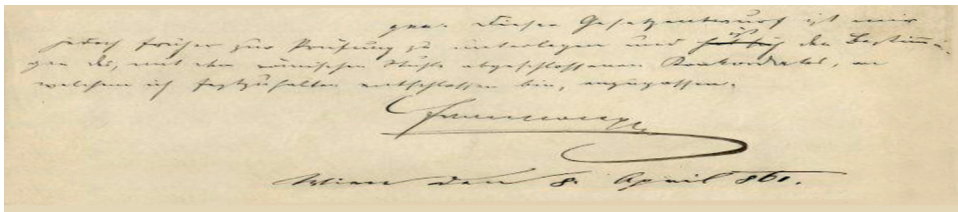 gna. Dieser Gesetzentwurf ist mir
jedoch früher zur Prüfung zu unterlegen und ist den Bestimmun-
gen des, mit dem römischen Stuhle abgeschlossenen Konkordates, an
welchem ich festzuhalten entschlossen bin, anzupassen.
Wien den 8. April 861.